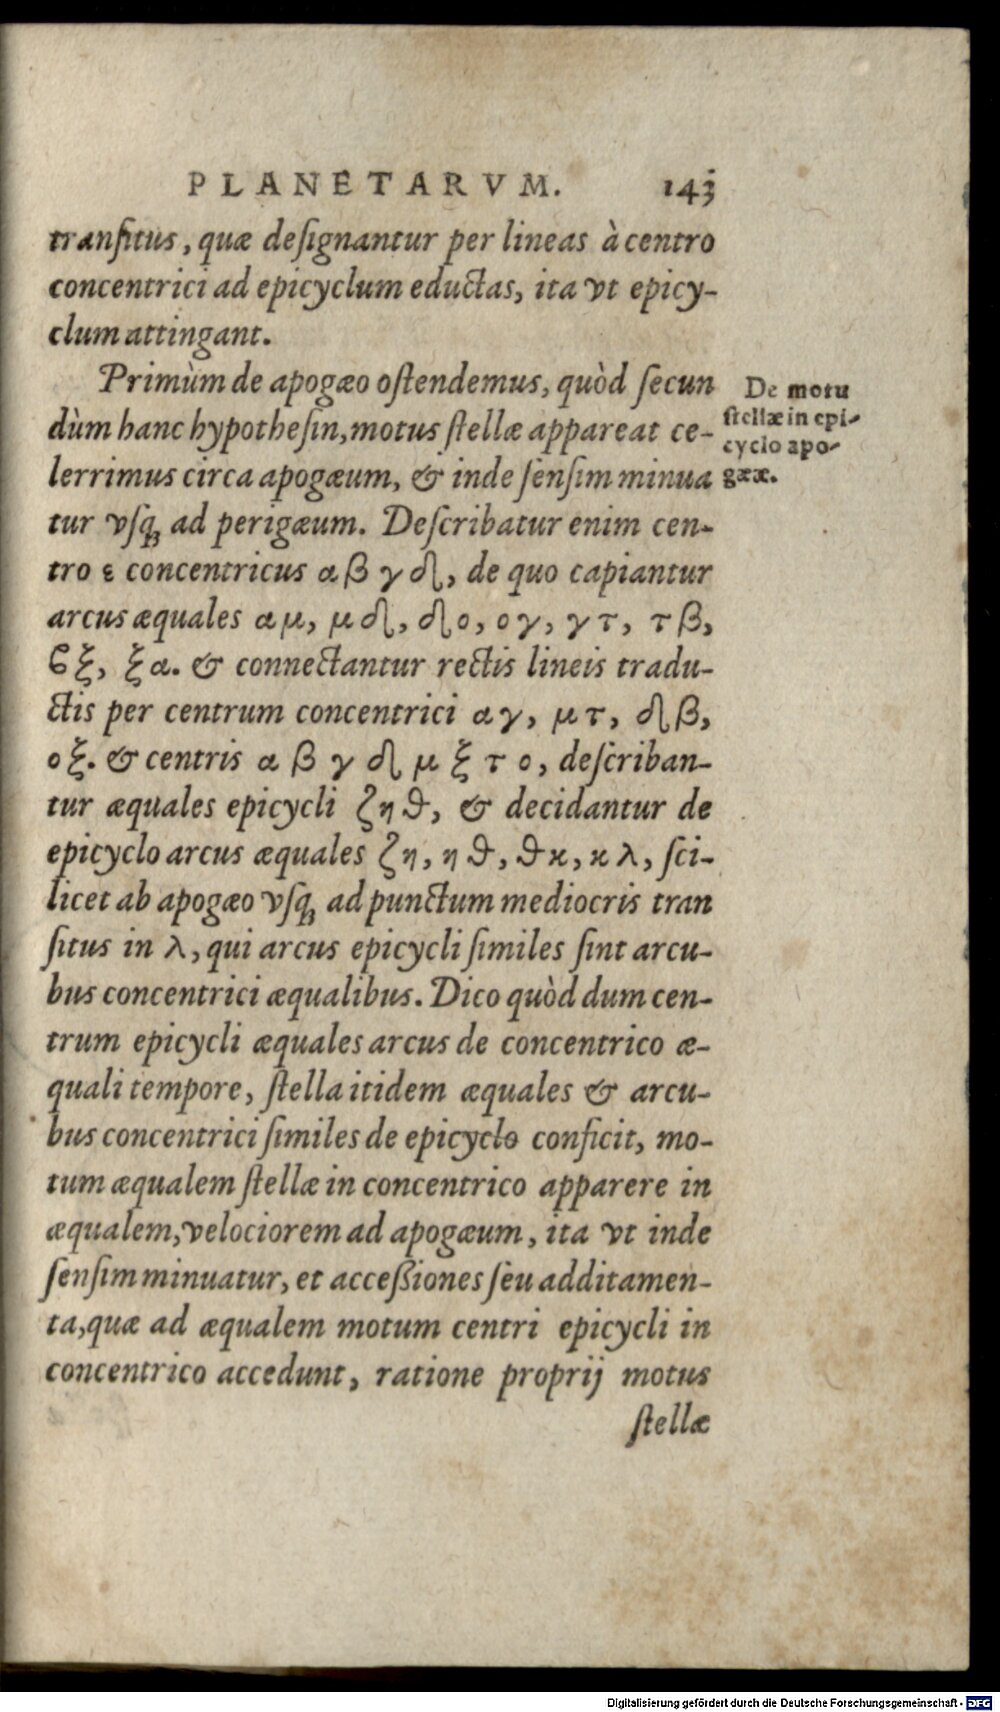 PLANETARVM. 143
tranſitus, quæ deſignantur per lineas à centro
concentrici ad epicyclum eductas, ita vt epicy-
clum attingant.
Primùm de apogæo oſtendemus, quòd ſecun
dùm hanc hypotheſin, motus ſtellæ appareat ce-
lerrimus circa apogæum, & inde ſenſim minua
tur vſq; ad perigæum. Deſcribatur enim cen-
tro ε concentricus α β γ δ, de quo capiantur
arcus æquales α μ, μ δ, δ ο, ο γ, γ τ, τ β,
ϐ ξ, ξ α. & connectantur rectis lineis tradu-
ctis per centrum concentrici α γ, μ τ, δ β,
ο ξ. & centris α β γ δ μ ξ τ ο, deſcriban-
tur æquales epicycli ζ η ϑ, & decidantur de
epicyclo arcus æquales ζ η, η ϑ, ϑ κ, κ λ, ſci-
licet ab apogæo vſq; ad punctum mediocris tran
ſitus in λ, qui arcus epicycli ſimiles ſint arcu-
bus concentrici æqualibus. Dico quòd dum cen-
trum epicycli æquales arcus de concentrico æ-
quali tempore, ſtella itidem æquales & arcu-
bus concentrici ſimiles de epicyclo conficit, mo-
tum æqualem ſtellæ in concentrico apparere in
æqualem, velociorem ad apogæum, ita vt inde
ſenſim minuatur, et acceſsiones ſeu additamen-
ta, quæ ad æqualem motum centri epicycli in
concentrico accedunt, ratione proprij motus
ſtellæ
De motu
ſtellæ in epi-
cyclo apo-
gææ.
Digitalisierung gefördert durch die Deutsche Forschungsgemeinschaft - DFG